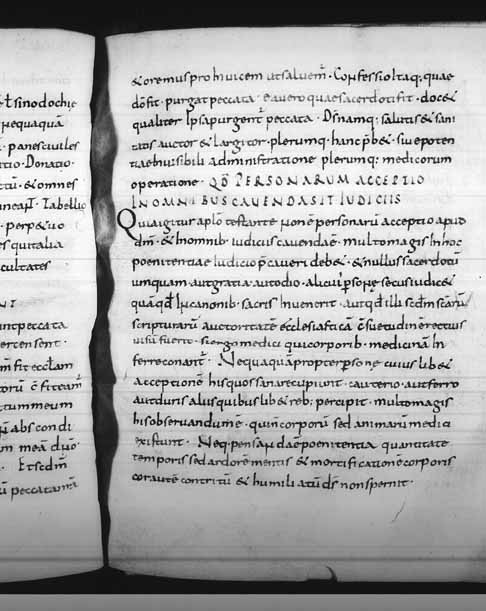 et sinodochie
nequaquā
panes uiles
tio. Donatio.
tū. et omnes
Tabellio
perpetuo
es qui talia
cultates
int peccata
ertensent.
m fit eccłam
tummeum
ū abscondi
on meā dixi
Et sedm̄
ū peccata mā
& oremus pro hinuicem ut saluem̄. Confessio itaq; quae
dō fit. purgat peccata. ea uero quae sacerdoti fit. docet
qualiter ipsa purgent̄ peccata. Ds namq; salutis & sani
tatis auctor & largitor. plerumq; hanc p̄bet. suae poten
tiae inuisibili administratione plerumq; medicorum
operatione. QD PERSONARUM ACCEPTIO
IN OMNIBUS CAUENDA SIT IUDICIIS
Quia igitur aplo testante non ē personarū acceptio apud
dm̄. & in omnib; iudiciis cauenda ē. multo magis in hoc
poenitentiae iudicio p̄caueri debet. & nullus sacerdotū
umquam aut gratia aut odio. alicui; psonę secus iudicet
quā qd̄ in canonib; sacris inuenerit. aut qd̄ illi scd̄m scārū
scripturarū auctoritatē & ecclesiasticā c̄suetudinē rectius
uisū fuerit. si ergo medici qui corporib; medicinā in
ferre conant̄. Nequaquā propter psonę cuius libet
acceptionē his quos sanare cupiunt. cauterio. aut ferro
aut duris aliis quibuslibet reb; percipit. multo magis
his obseruandum ē. qui n̄ corporū sed animarū medici
existunt. Neq; pensanda ē poenitentia quantitate
temporis sed ardore mentis & mortificatione corporis
cor autē contritū & humiliatū ds non spernit.